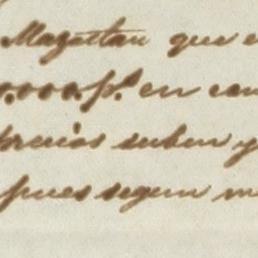 Mazatlan que e
0.000.ps. en con
precios suben y
pues segun m